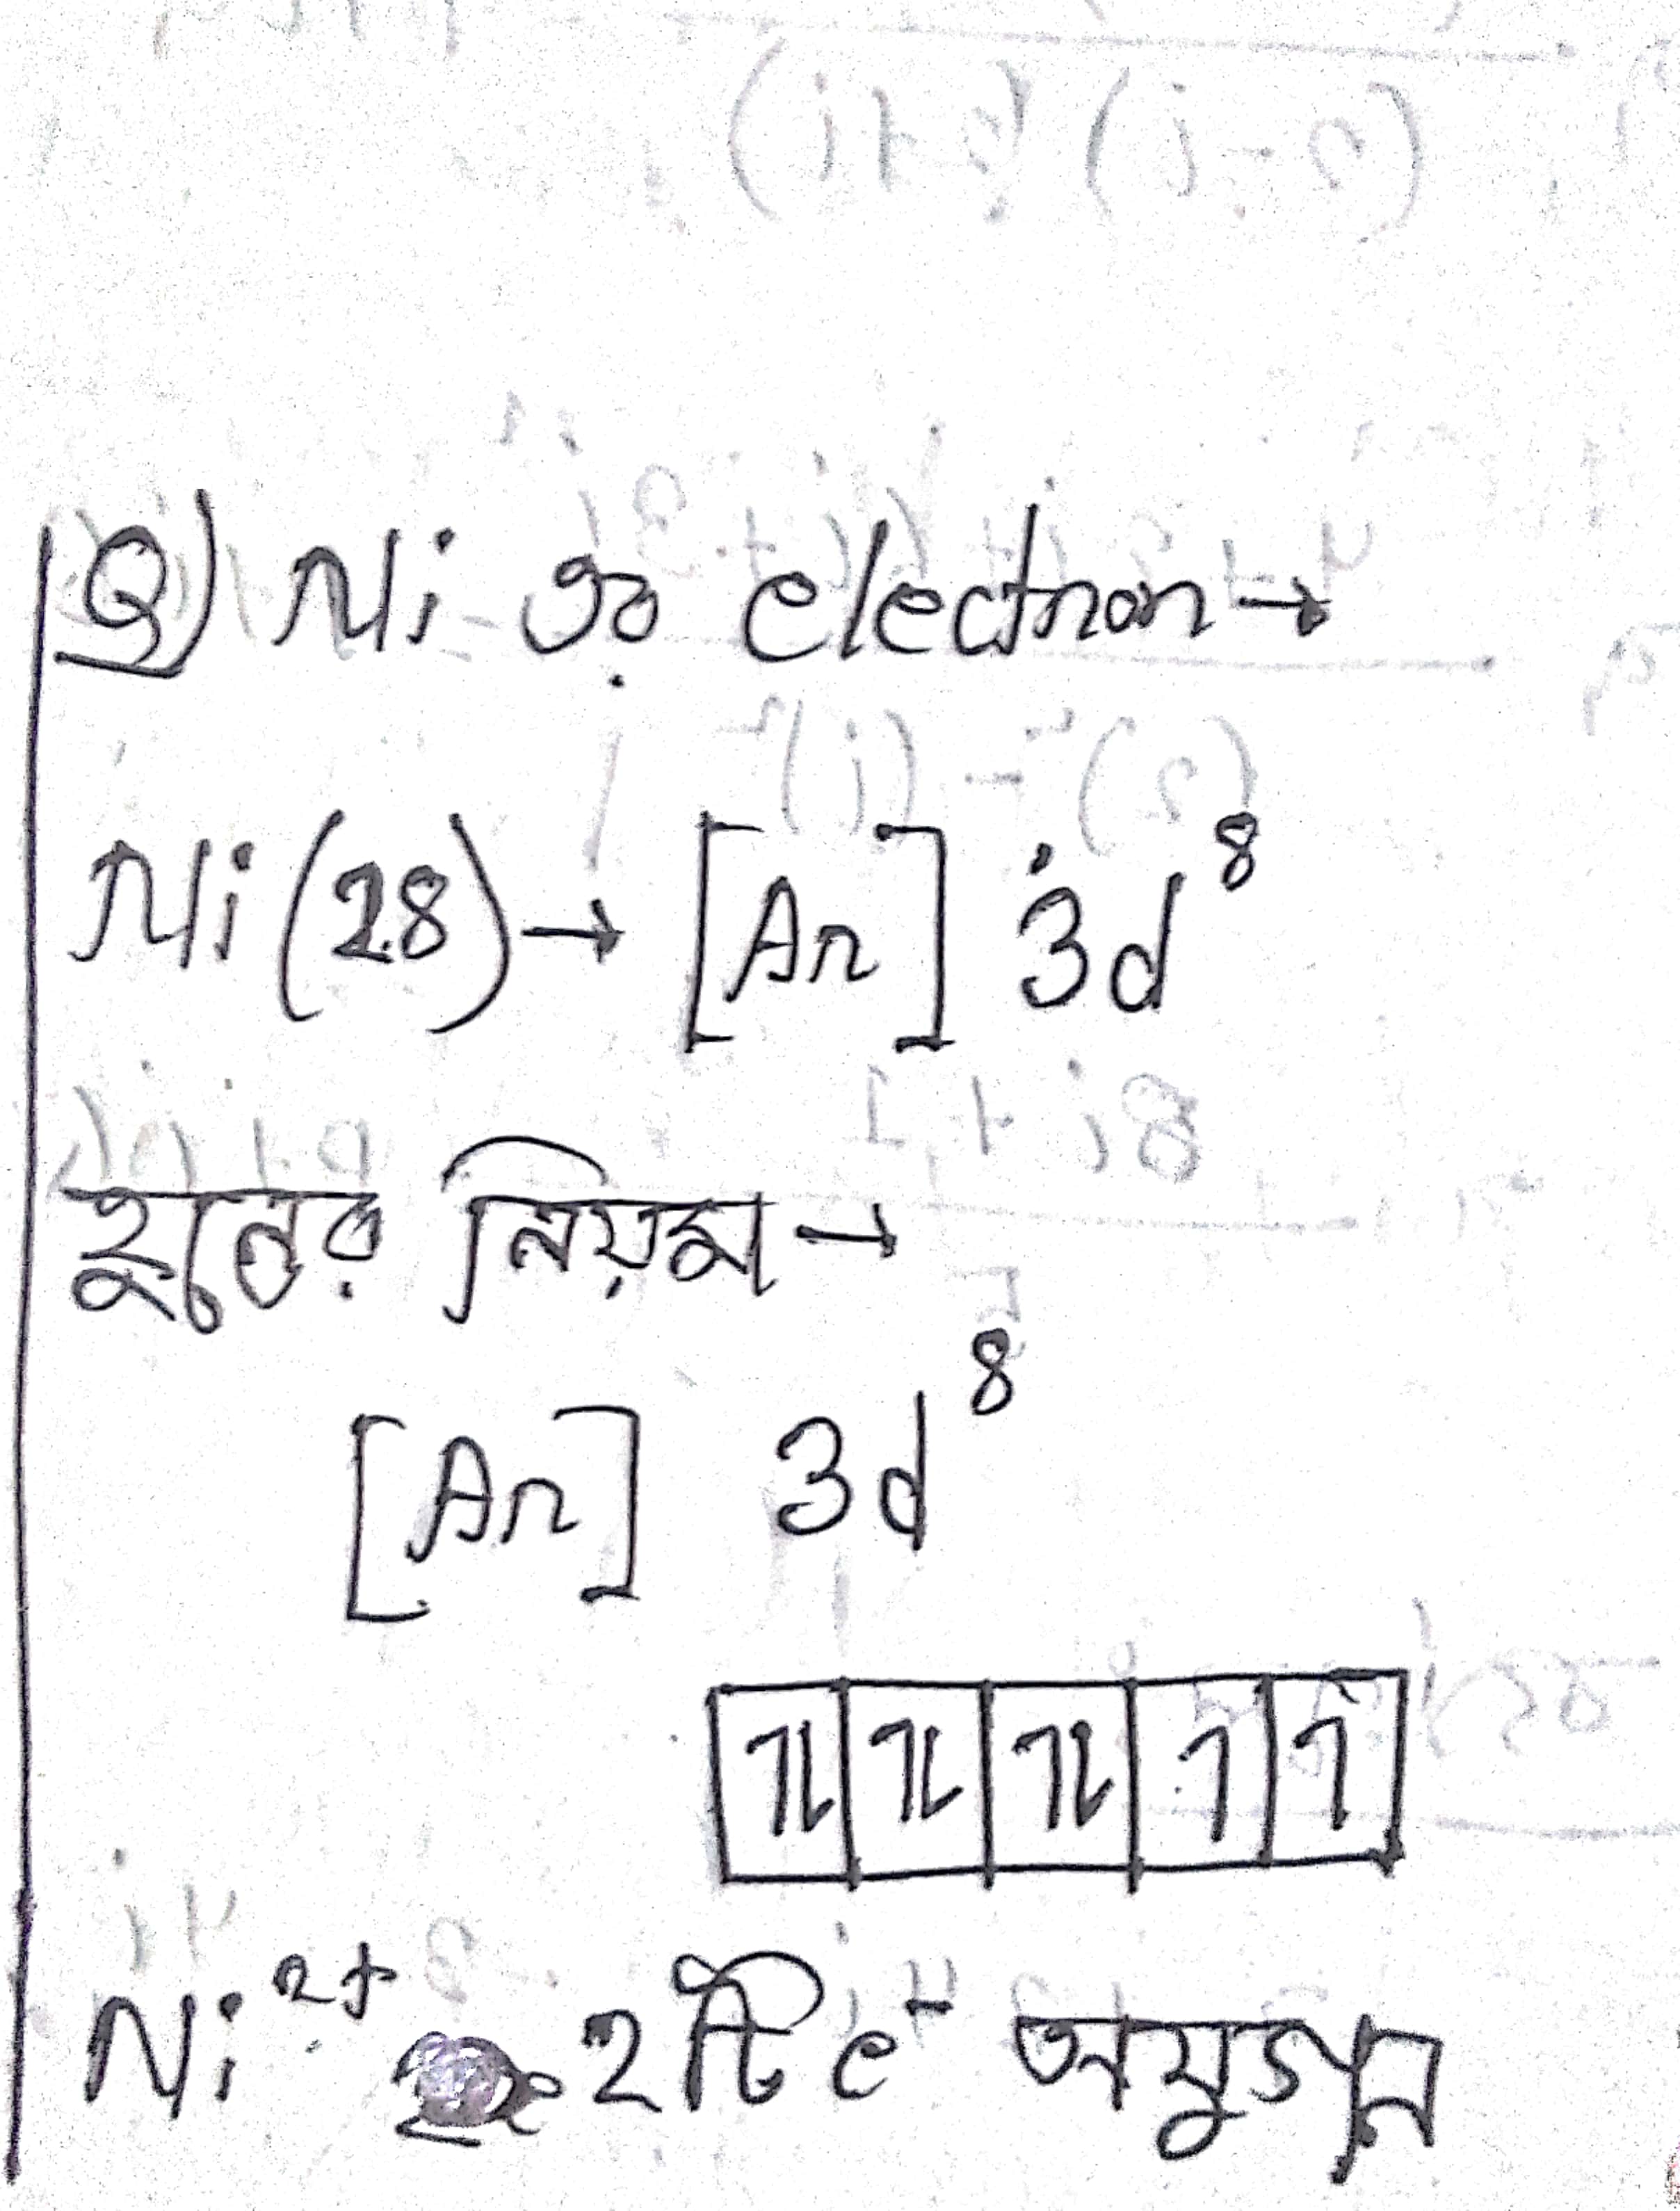 Q) Ni এর electron →
Ni (28) → [Ar] 3d⁸
হুনের নিয়ম →
[Ar] 3d⁸
↑↓ ↑↓ ↑↓ ↑ ↑
Ni²⁺ 2টি e⁻ অযুগ্ম